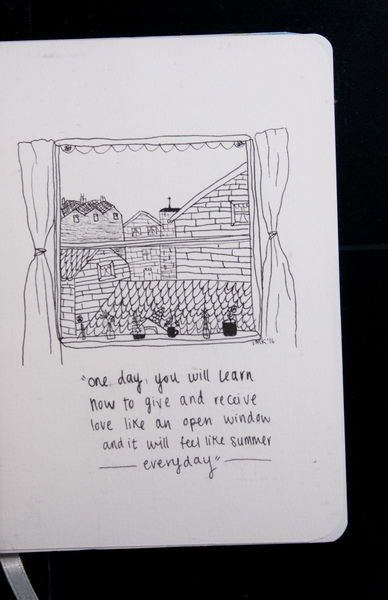 "one day, you will learn
how to give and receive
love like an open window
and it will feel like summer
everyday"